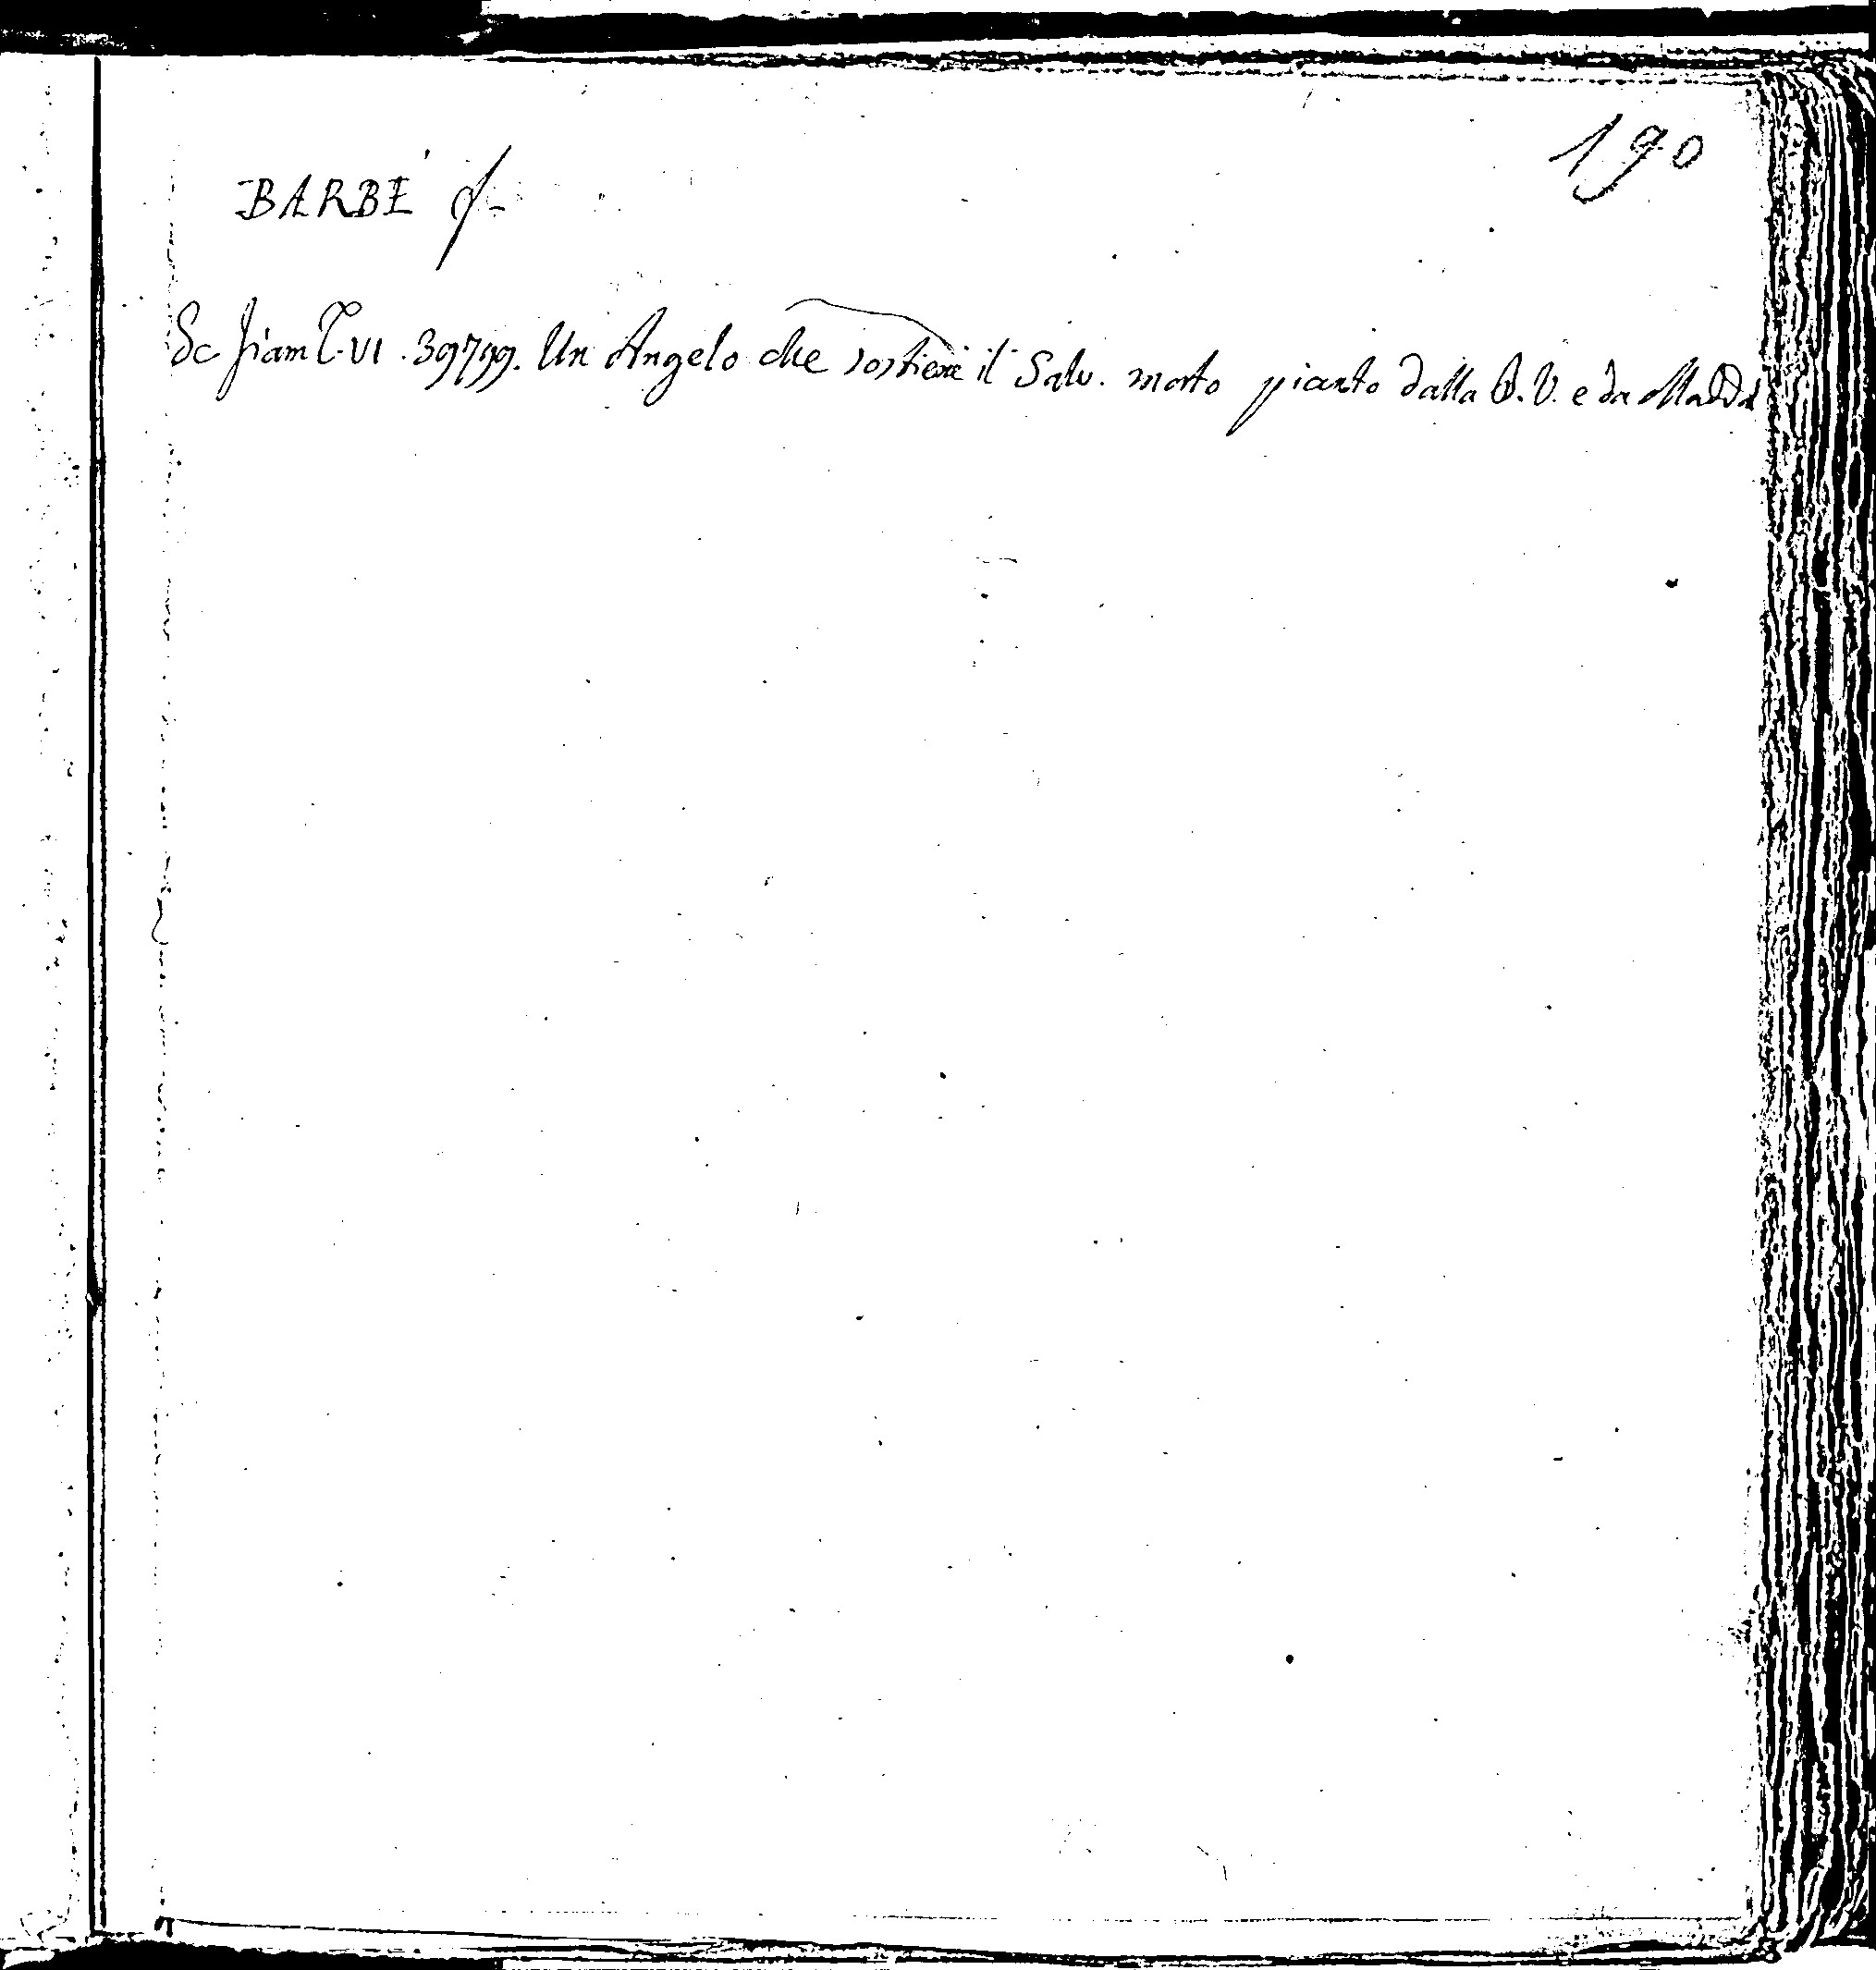 190
BARBÉ f.
Sc fiam T. VI. 39799. Un Angelo che sostiene il Salv. morto pianto dalla B. V. e da Madda